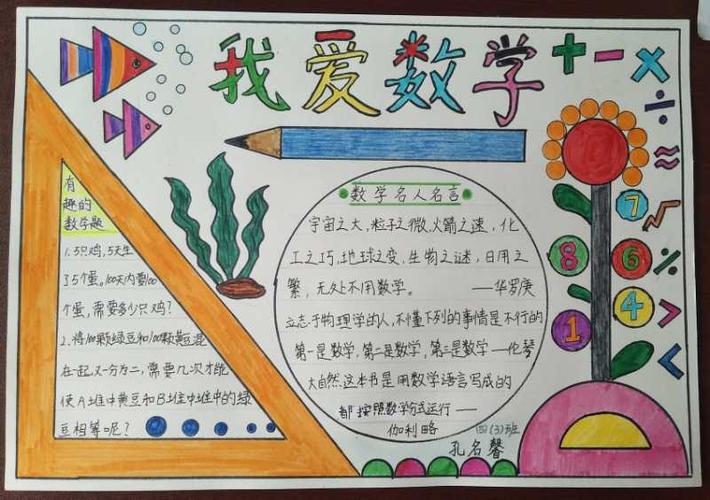 我爱数学
+ - ×
÷
≈
有
趣的
数学题
1. 5只鸡,5天生
了5个蛋。100天内要100
个蛋,需要多少只鸡?
2. 将100颗绿豆和100颗黄豆混
在一起又一分为二,需要几次才能
使A堆中黄豆和B堆中堆中的绿
豆相等呢?
数学名人名言
宇宙之大,粒子之微,火箭之速,化
工之巧,地球之变,生物之谜,日用之
繁,无处不用数学。 ——华罗庚
立志于物理学的人,不懂下列的事情是不行的
第一是数学,第二是数学,第三是数学—伦琴
大自然这本书是用数学语言写成的
都按照数学方式运行——
伽利略
7
8 6
4
1
√
÷
>
<
四(3)班
孔名馨